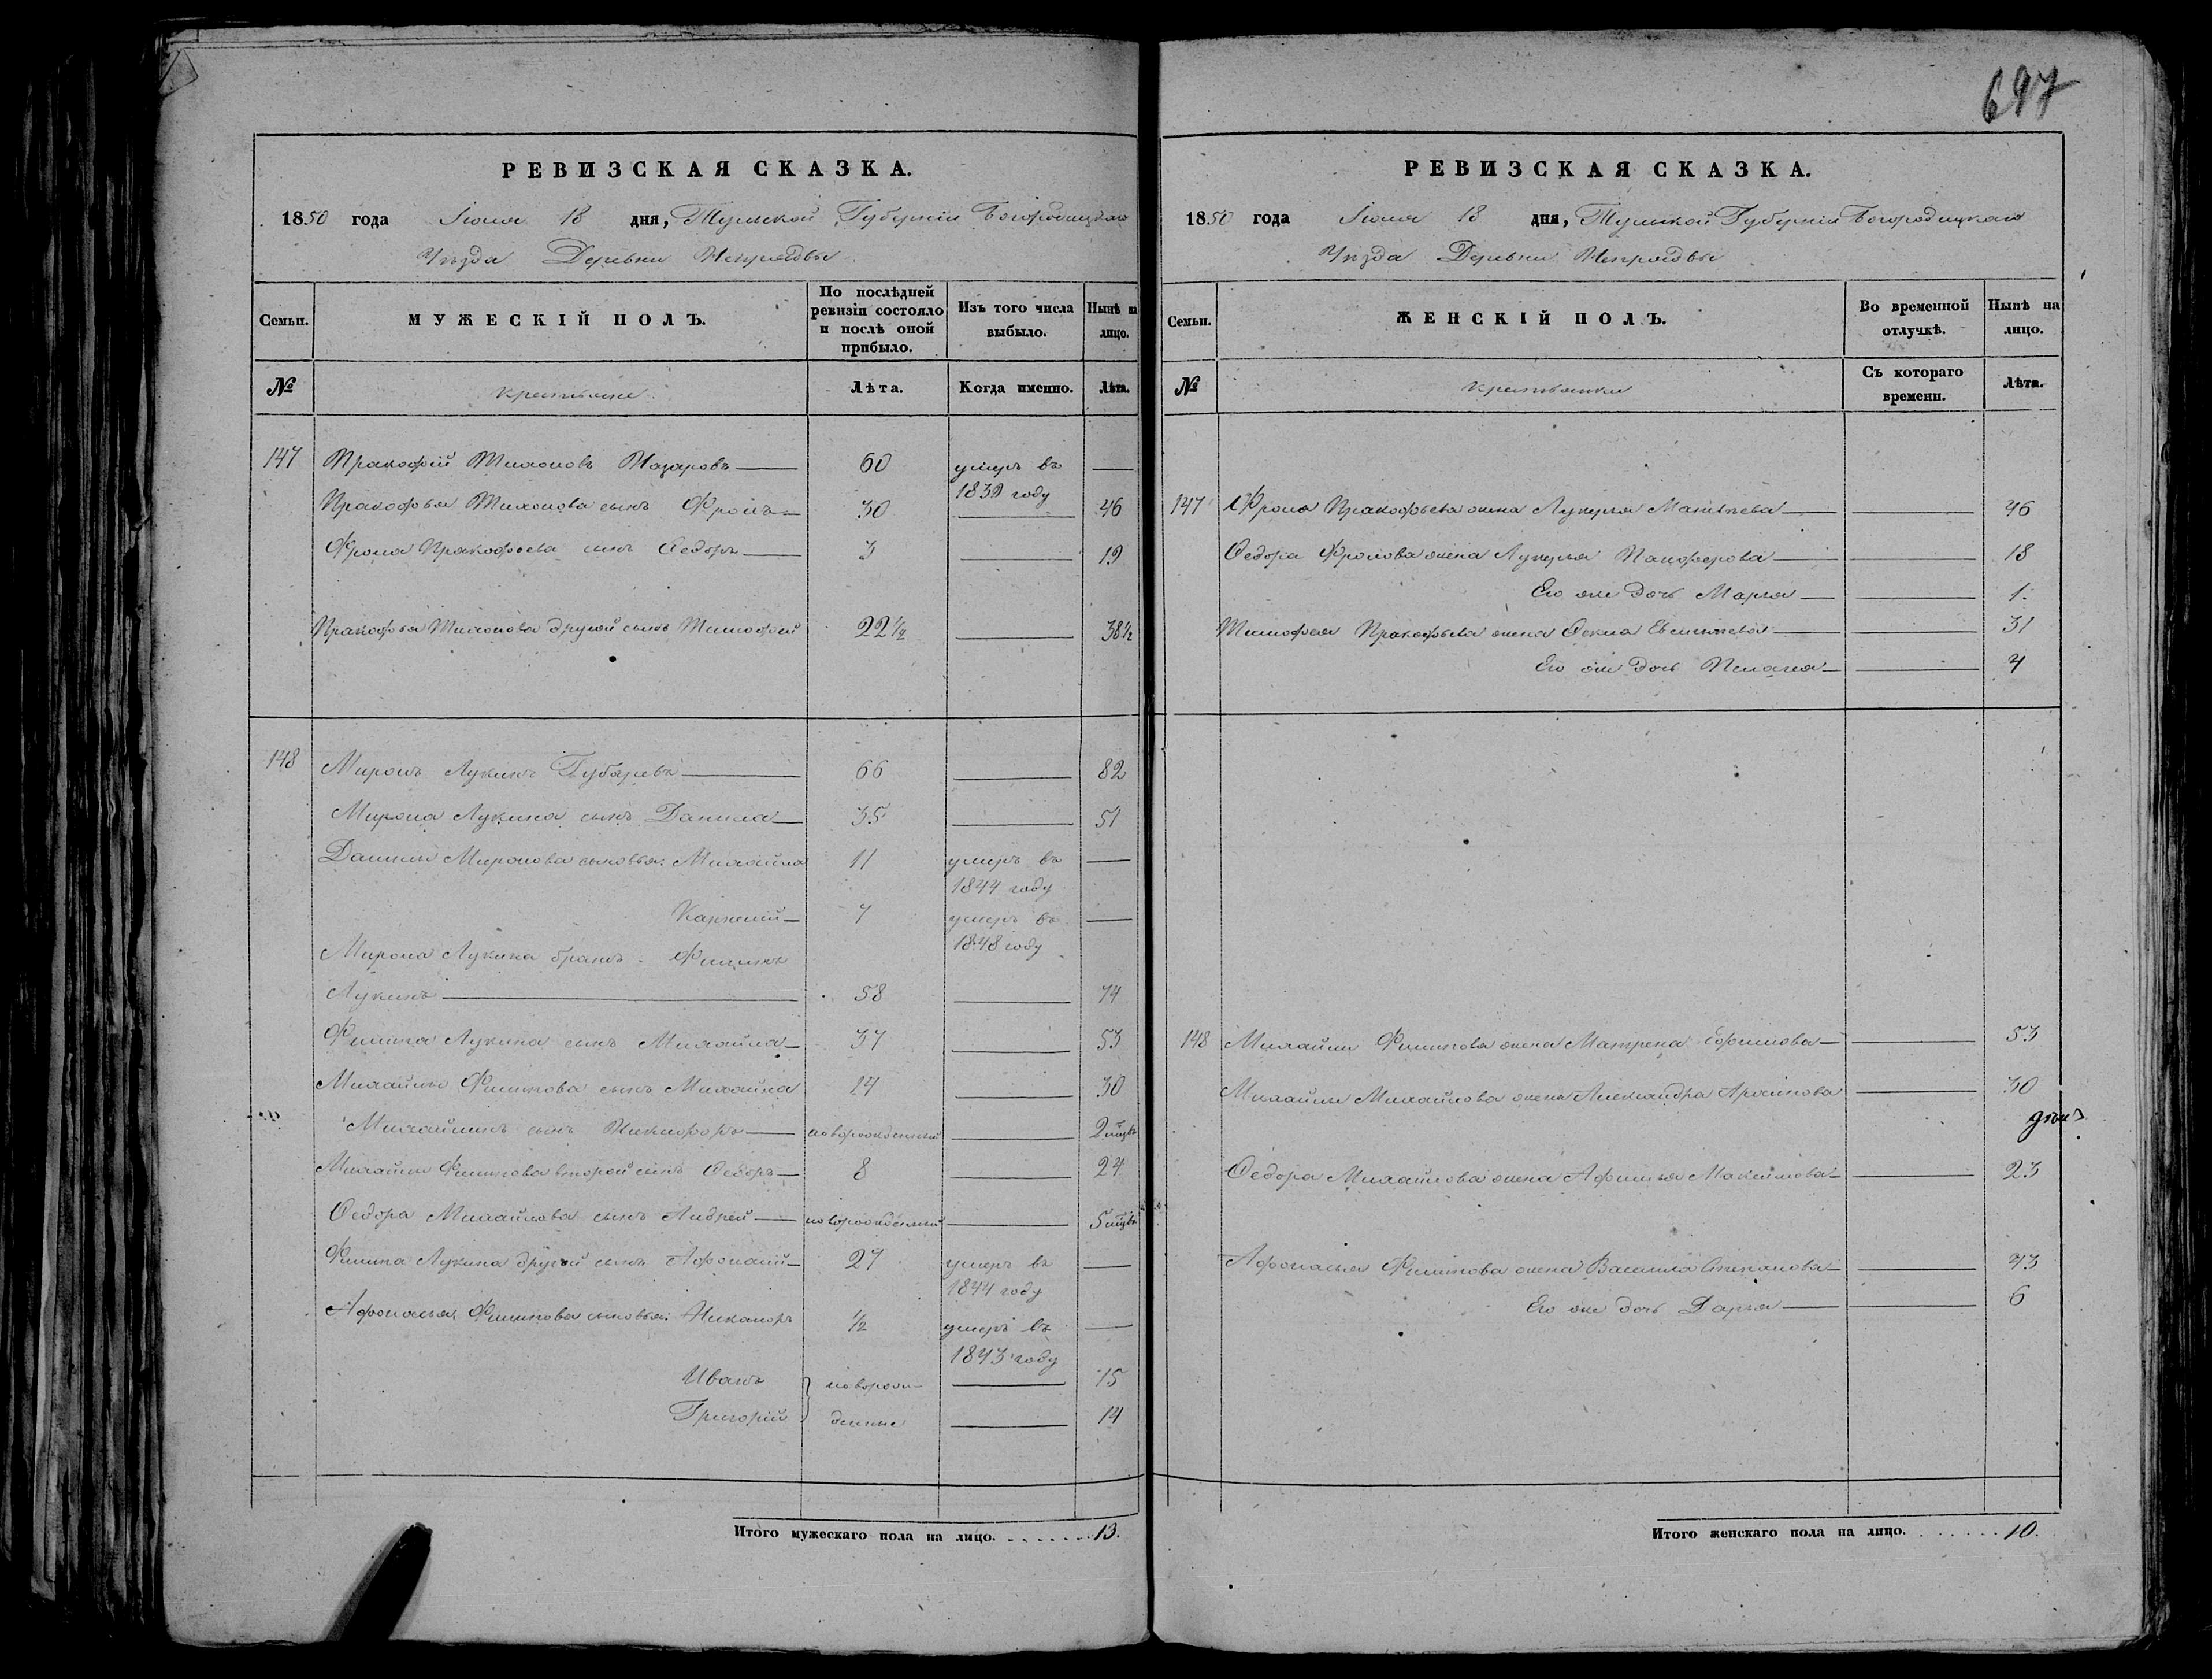 697
РЕВИЗСКАЯ СКАЗКА.
1850 года Іюня 18 дня, Тульской Губерніи Богородицкаго
Уѣзда Деревни Непрядвы
Семьи. МУЖЕСКІЙ ПОЛЪ. По послѣдней ревизіи состояло и послѣ оной прибыло. Изъ того числа выбыло. Нынѣ на лицо.
№ Крестьяне Лѣта. Когда именно. Лѣта.
147 Пракофій Тихоновъ Назаровъ 60 умеръ въ
1839 году
Пракофья Тихонова сынъ Фролъ 30 46
Фрола Пракофьева сынъ Ѳедоръ 3 19
Пракофья Тихонова другой сынъ Тимофей 22½ 38½
148 Миронъ Лукинъ Губаревъ 66 82
Мирона Лукина сынъ Данила 35 51
Данилы Миронова сыновья: Михайла 11 умеръ въ
1844 году
7 умеръ въ
1848 году
Мирона Лукина братъ Филипъ
Лукинъ 58 74
Филипа Лукина сынъ Михайла 37 53
Михайлы Филипова сынъ Михайла 14 30
Михайлинъ сынъ Никифоръ новорожденный 2 мѣс
Михайлы Филипова второй сынъ Ѳедоръ 8 24
Ѳедора Михайлова сынъ Андрей новорожденный 5 мѣс
Филипа Лукина другой сынъ Афонасій 27 умеръ въ
1844 году
Афонасья Филипова сыновья: Никаноръ ½ умеръ въ
1843 году
Иванъ новорож- 15
Григорій денные 14
Итого мужескаго пола на лицо. 13.
РЕВИЗСКАЯ СКАЗКА.
1850 года Іюня 18 дня, Тульской Губерніи Богородицкаго
Уѣзда Деревни Непрядвы
Семьи. ЖЕНСКІЙ ПОЛЪ. Во временной отлучкѣ. Нынѣ на лицо.
№ Крестьянки Съ котораго времени. Лѣта.
147 Фрола Пракофьева жена Лукерья Матвѣева 46
Ѳедора Фролова жена Лукерья Панферова 18
Его же дочь Марья 1.
Тимофея Пракофьева жена Ѳекла Евсигнѣева 31
Его же дочь Пелагея 4
148 Михайлы Филипова жена Матрена Ефимова 53
Михайлы Михайлова жена Александра Архипова 30
Ѳедора Михайлова жена Афимья Максимова 23
Афонасья Филипова жена Василиса Степанова 43
Его же дочь Дарья 6
Итого женскаго пола на лицо. 10.